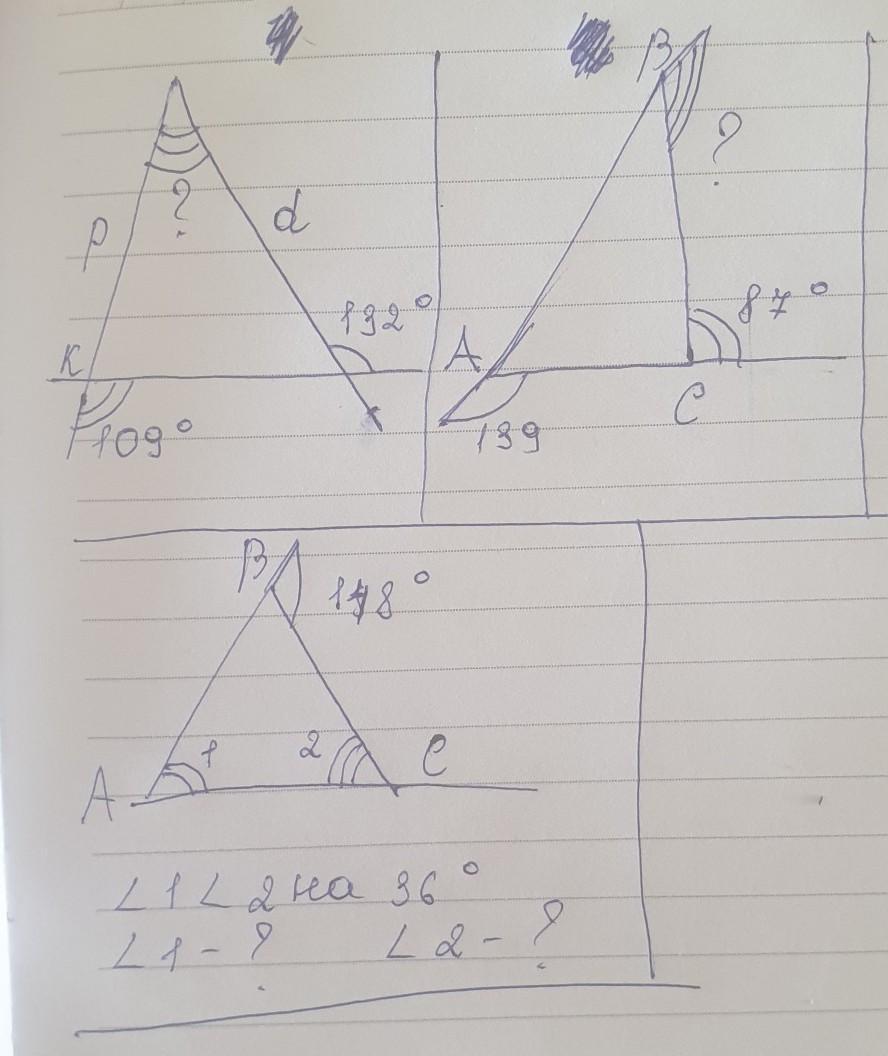 ?
P
d
K
132°
109°
B
?
A
87°
C
139
B
118°
1
2
A
C
∠1 < 2 на 36°
∠1 - ?    ∠2 - ?